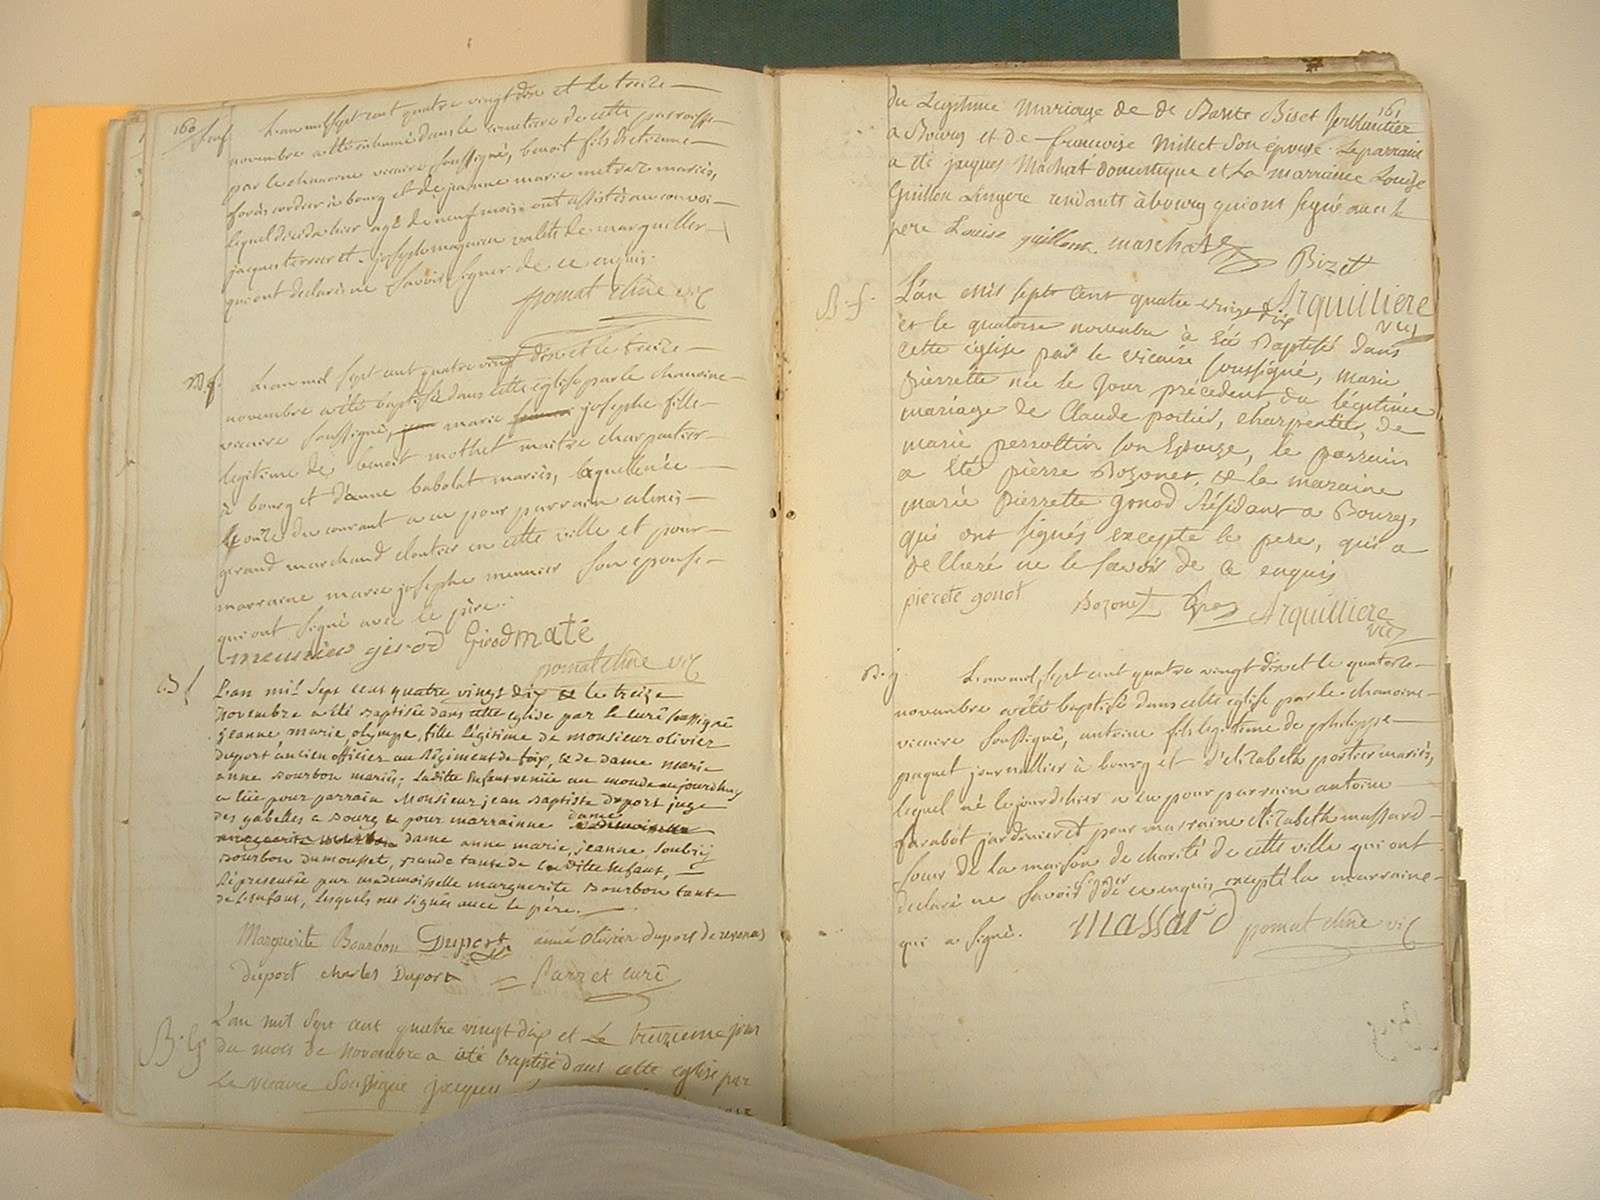 160
L'an mil sept cent quatre vingt dix et le treize
novembre a été inhumé dans le cimetiere de cette paroisse
par le chanoine vicaire soussigné, benoit fils d'etienne
cordier à bourg et de jeanne marie mariés,
lequel décéda hier agé de neuf mois. ont assisté au convoi
jacques et joseph valets de marguiller
qui ont déclaré ne savoir signer de ce enquis.
pomat chne vic
B. f.
L'an mil sept cent quatre vingt dix et le treize
novembre a été baptisée dans cette eglise par le chanoine
vicaire soussigné, marie josephe fille
legitime de benoit mothet maitre charpentier
à bourg et d'anne babolat mariés, laquelle née
le onze du courant a eu pour parrain
girard marchand cloutier en cette ville et pour
marraine marie josephe meunier son epouse
qui ont signé avec le père.
meunier girod Girod maté
pomat chne vic
B f
L'an mil sept cens quatre vingts dix & le treize
novembre a été baptisée dans cette eglise par le curé soussigné
jeanne, marie, olympe, fille légitime de monsieur olivier
duport ancien officier au Régiment de foix, & de dame marie
anne bourbon mariés; Ladite Enfant venüe au monde aujourdhuy
a eüe pour parrain Monsieur jean baptiste duport juge
des gabelles a bourg & pour marrainne dame
dame anne marie, jeanne
bourbon dumousset, grande tante de la ditte Enfant,
Réprésentée par mademoiselle marguerite bourbon tante
de l'enfant, lesquels ont signés avec le père.
Marguerite Bourbon Duport anne Olivier duport de revonas
duport charles Duport = Parret curé
B. g.
L'an mil sept cent quatre vingt dix et Le treizieme jour
du mois de novembre a été baptisé dans cette eglise par
Le vicaire soussigné jacques
161
du Legitime mariage de de Bizet ferblantier
a Bourg et de françoise Millet son épouse. Le parrain
a été jacques Machat domestique et La marrainne Louise
Guillon Lingere residants à bourg qui ont signé avec le
pere Louise guillon maschat Bizet
Arquilliere
vic
B. f.
L'an mil sept cent quatre vingt dix
et le quatorze novembre à été Baptisée dans
cette église par le vicaire soussigné, marie
pierrette née le jour précedent du légitime
mariage de Claude poitier, charpentier, de
marie perrottin son Epouse, le parrain
a été pierre Bozonet, & la maraine
marie pierrette gonod Résidant a Bourg,
qui ont signés excepté le pere, qui a
déclaré ne le savoir de ce enquis
pierete gonot Bozonet Arquilliere
vic
B. g.
L'an mil sept cent quatre vingt dix et le quatorze
novembre a été baptisé dans cette eglise par le chanoine
vicaire soussigné, antoine fils legitime de philippe
paquet journallier à bourg et d'elizabeth portier mariés,
lequel né le jour d'hier a eu pour parrain antoine
farabot jardinier et pour marraine elizabeth massard
soeur de la maison de charité de cette ville qui ont
declaré ne savoir signer de ce enquis excepté la marraine
qui a signé. massard pomat chne vic